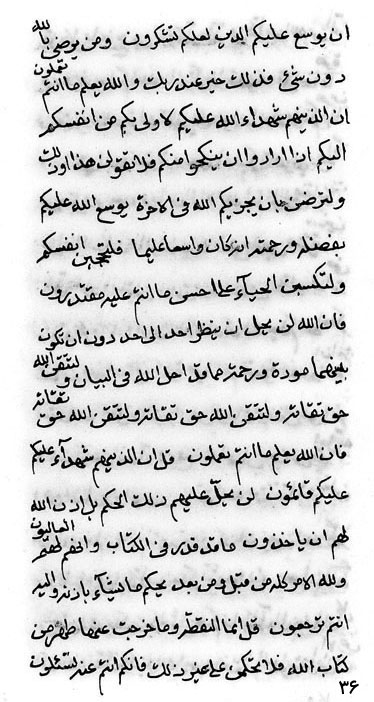 ان يوسع عليكم الدين لعلكم تشكرون ومن يوضى بالله
دون شئ فذلك خير عند ربك والله يعلم ما انتم تعملون
ان الذينهم شهداء الله عليكم لاولى بكم من انفسكم
اليكم اذا ارادوا ان ينكحوا منكم فلا تقولن هذا اوذلك
ولترضين بان يجزيكم الله فى الاخرة يوسع الله عليكم
بفضله ورحمته انه كان واسعا عليما فلتحجبن انفسكم
ولتكسبن الحيآء على احسن ما انتم عليه مقتدرون
فان الله لن يحل ان ينظر احد الى احد دون ان تكون
بينهما مودة ورحمة مما قد احل الله فى البيان ولتتقى الله
حق تقاته ولتتقن الله حق تقاته ولتتقن الله حق تقاته
فان الله يعلم ما انتم تعملون قل ان الذينهم شهدآء عليكم
عليكم قائمون لن يحل عليهم ذلك الحكم بل اذن الله
لهم ان ياخذون ما قد قدر فى الكتاب وانهم لهم العاليون
ولله الامر كله من قبل ومن بعد يحكم ما يشآء باذنه واليه
انتم ترجعون قل انما النقطة وما خرجت عنها طهر من
كتاب الله فلا تحكمن على غير ذلك فانكم انتم عنه لتسئلون
۳۶